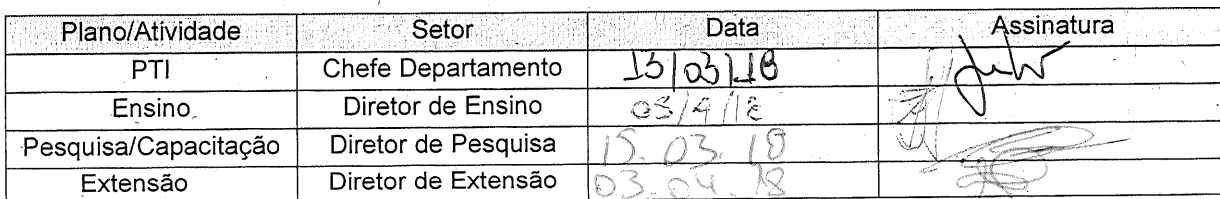 Plano/Atividade Setor Data Assinatura
PTI Chefe Departamento 13/03/18
Ensino Diretor de Ensino 05/4/18
Pesquisa/Capacitação Diretor de Pesquisa 15.03.18
Extensão Diretor de Extensão 03.04.18